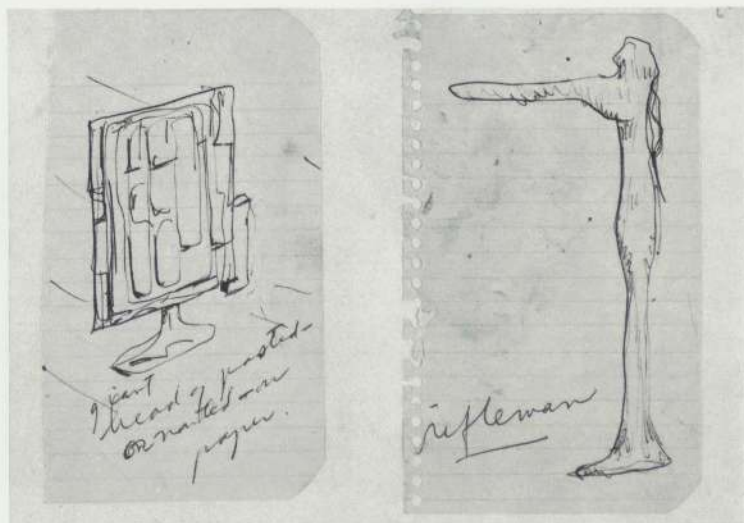 giant
head of pasted-
OR
paper.
rifleman